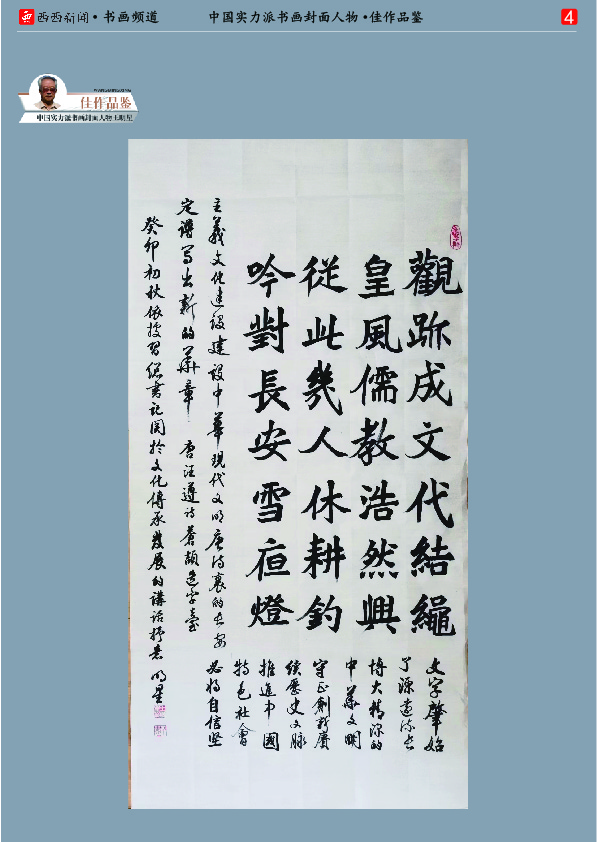 西西新闻·书画频道
中国实力派书画封面人物·佳作品鉴
4
佳作品鉴
中国实力派书画封面人物王明星
觀跡成文代結繩
皇風儒教浩然興
從此幾人休耕釣
吟對長安雪夜燈
文字肇始
了源遠流長
博大精深的
中華文明
守正創新賡
續歷史文脈
推進中國
特色社會
主義文化建設建設中華現代文明唐詩裏的長安
必將自信堅
定譜寫出新的華章 唐汪遵詩蒼頡造字臺
癸卯初秋依據習總書記關於文化傳承發展的講話抒意 明星